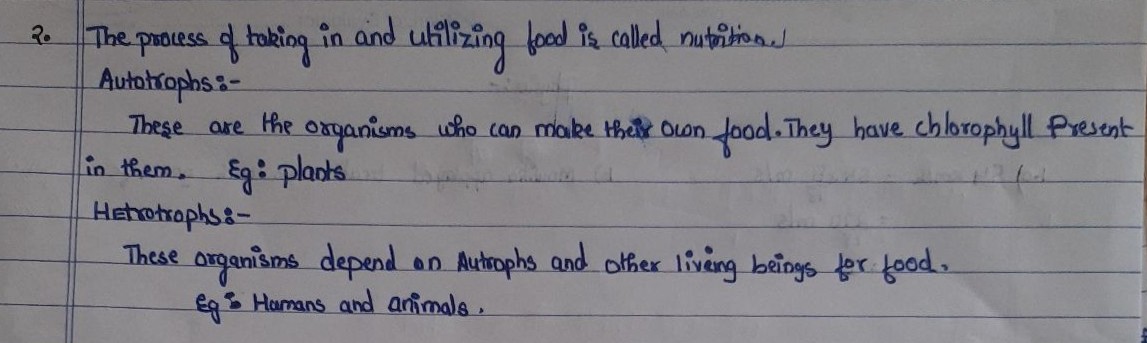 2. The process of taking in and utilizing food is called nutrition.
Autotrophs:-
These are the organisms who can make their own food. They have chlorophyll present
in them. Eg: plants
Hetrotrophs:-
These organisms depend on Autrophs and other living beings for food.
Eg: Humans and animals.